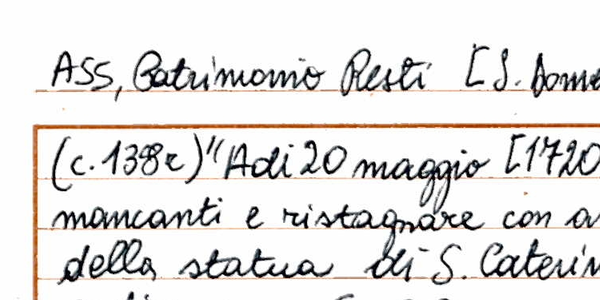 ASS, Patrimonio Resti [S. Dome
(c.138r) "Adi 20 maggio [1720
mancanti e ristagnare con a
della statua di S. Caterin